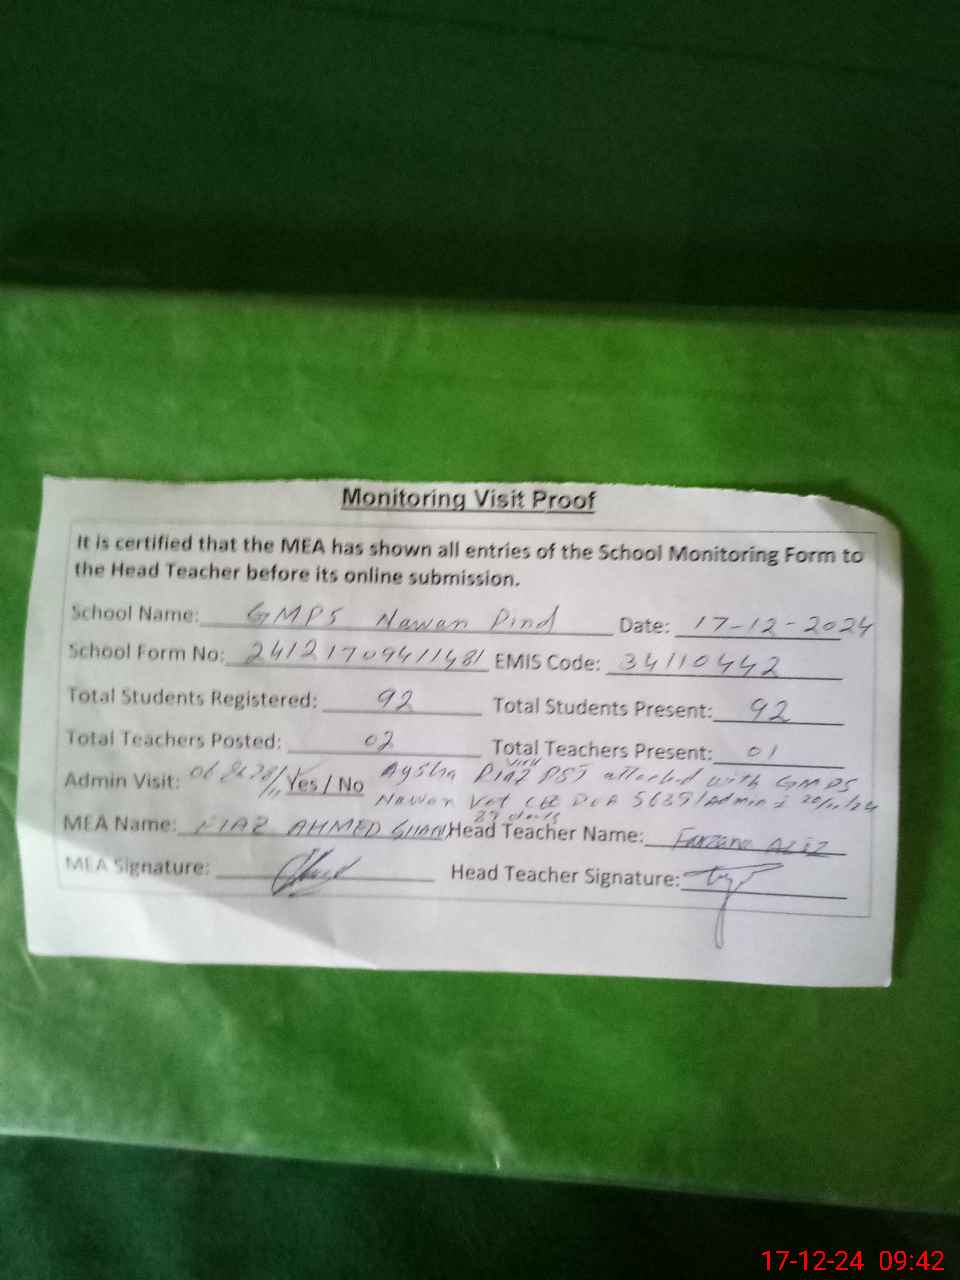 Monitoring Visit Proof
It is certified that the MEA has shown all entries of the School Monitoring Form to
the Head Teacher before its online submission.
School Name: GMPS Nawan Pind Date: 17-12-2024
School Form No: 24121709411481 EMIS Code: 34110442
Total Students Registered: 92 Total Students Present: 92
Total Teachers Posted: 02 Total Teachers Present: 01
Admin Visit: Yes / No Aysha Riaz PST attached with GMPS
Nawan DEA 5639/Admin
MEA Name: FIAZ AHMED Head Teacher Name: Farzana Aziz
MEA Signature: Head Teacher Signature:
17-12-24 09:42